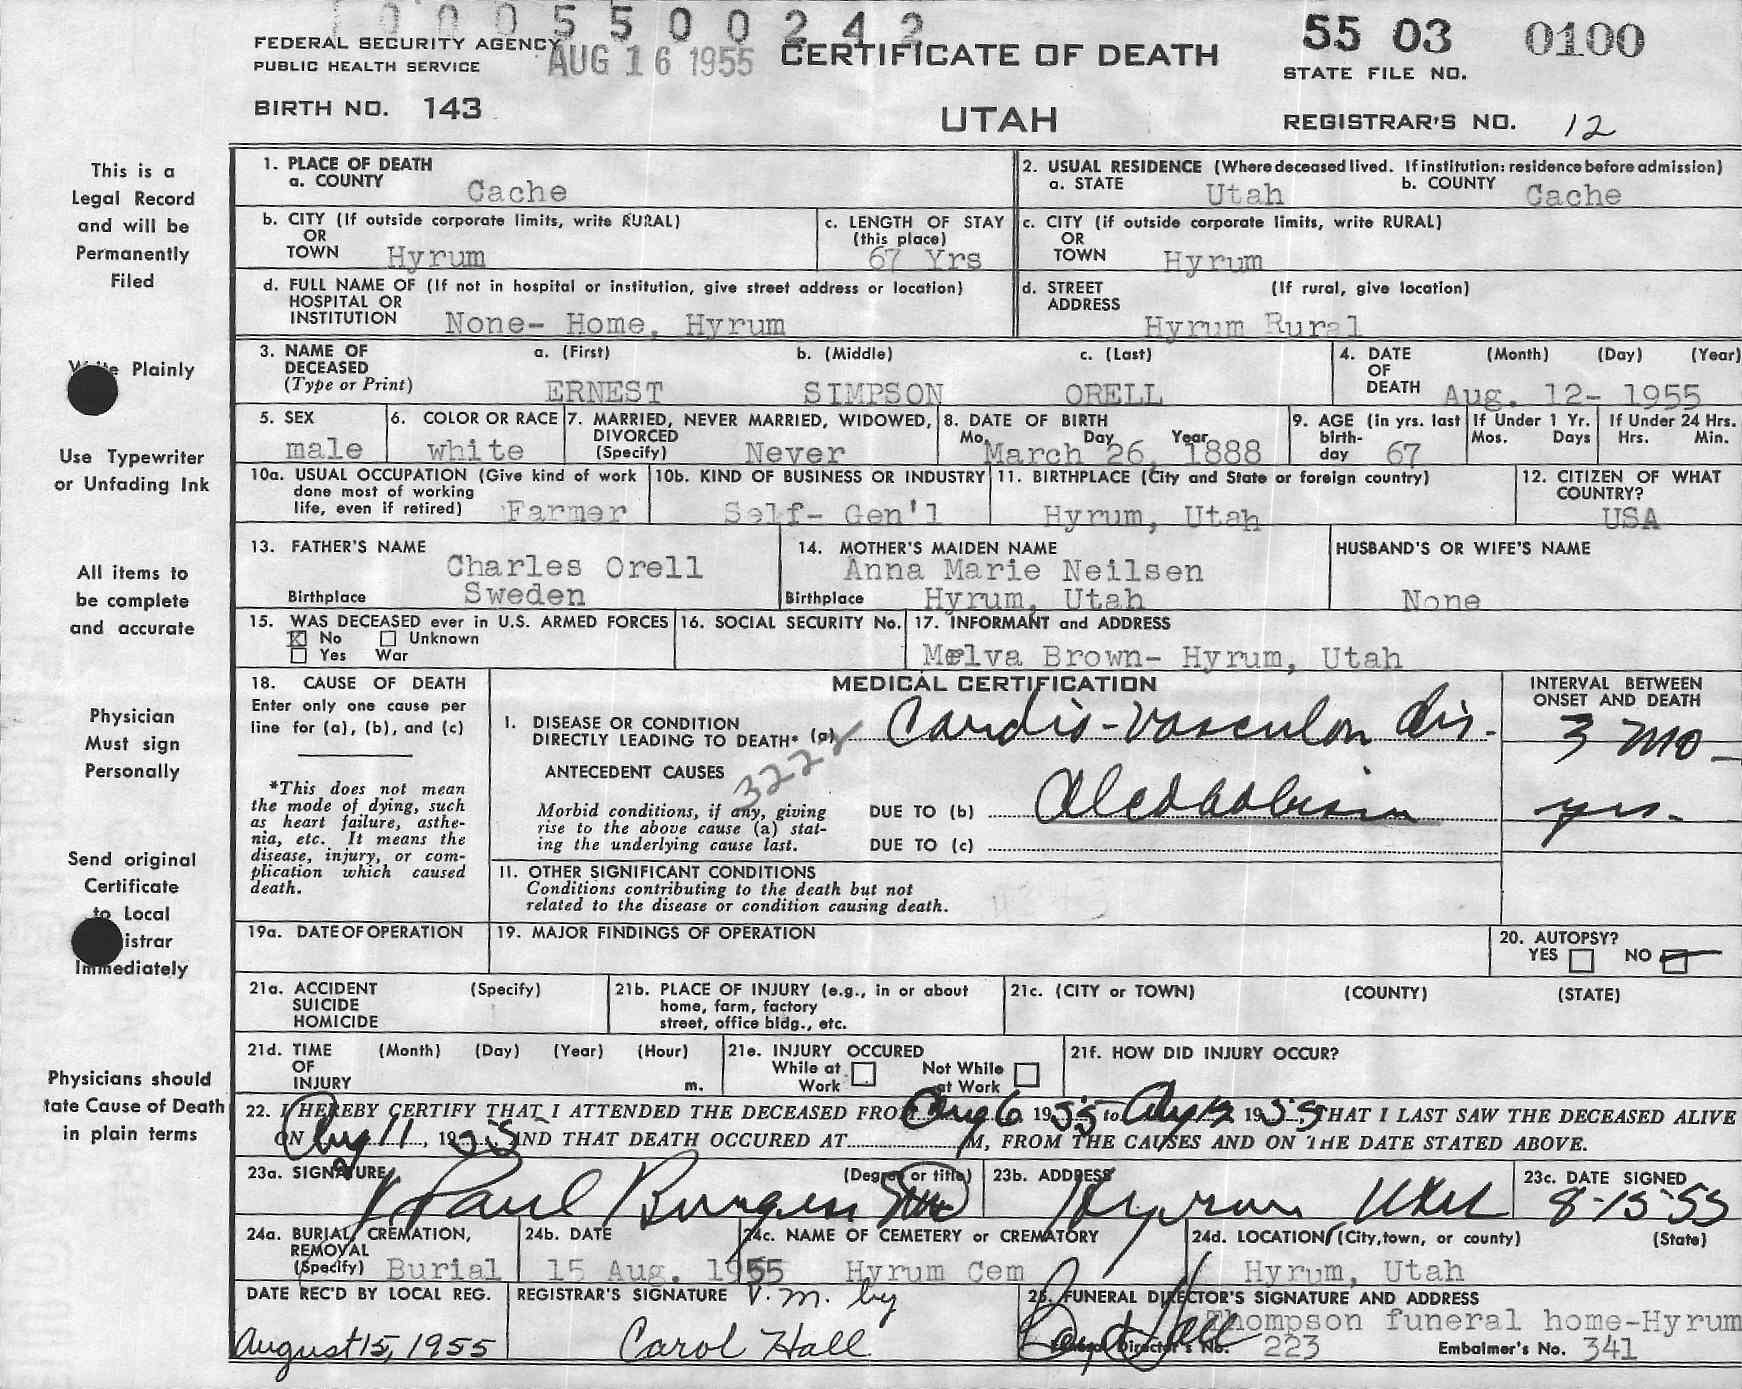 0005500242
FEDERAL SECURITY AGENCY
PUBLIC HEALTH SERVICE
AUG 16 1955
CERTIFICATE OF DEATH
55 03 0100
STATE FILE NO.
BIRTH NO. 143
UTAH
REGISTRAR'S NO. 12
This is a
Legal Record
and will be
Permanently
Filed
Write Plainly
Use Typewriter
or Unfading Ink
All items to
be complete
and accurate
Physician
Must sign
Personally
Send original
Certificate
to Local
istrar
Immediately
Physicians should
tate Cause of Death
in plain terms
1. PLACE OF DEATH
a. COUNTY Cache
2. USUAL RESIDENCE (Where deceased lived. If institution: residence before admission)
a. STATE Utah b. COUNTY Cache
b. CITY (If outside corporate limits, write RURAL)
OR
TOWN Hyrum
c. LENGTH OF STAY
(this place)
67 Yrs
c. CITY (if outside corporate limits, write RURAL)
OR
TOWN Hyrum
d. FULL NAME OF (If not in hospital or institution, give street address or location)
HOSPITAL OR
INSTITUTION None- Home, Hyrum
d. STREET (If rural, give location)
ADDRESS
Hyrum Rural
3. NAME OF DECEASED
(Type or Print)
a. (First) b. (Middle) c. (Last)
ERNEST SIMPSON ORELL
4. DATE OF DEATH (Month) (Day) (Year)
Aug. 12- 1955
5. SEX
male
6. COLOR OR RACE
white
7. MARRIED, NEVER MARRIED, WIDOWED,
DIVORCED
(Specify) Never
8. DATE OF BIRTH
Mo. Day Year
March 26, 1888
9. AGE (in yrs. last
birth-
day 67
If Under 1 Yr.
Mos. Days
If Under 24 Hrs.
Hrs. Min.
10a. USUAL OCCUPATION (Give kind of work
done most of working
life, even if retired) Farmer
10b. KIND OF BUSINESS OR INDUSTRY
Self- Gen'l
11. BIRTHPLACE (City and State or foreign country)
Hyrum, Utah
12. CITIZEN OF WHAT
COUNTRY?
USA
13. FATHER'S NAME
Charles Orell
Birthplace Sweden
14. MOTHER'S MAIDEN NAME
Anna Marie Neilsen
Birthplace Hyrum, Utah
HUSBAND'S OR WIFE'S NAME
None
15. WAS DECEASED ever in U.S. ARMED FORCES
No Unknown
Yes War
16. SOCIAL SECURITY No.
17. INFORMANT and ADDRESS
Melva Brown- Hyrum, Utah
18. CAUSE OF DEATH
Enter only one cause per
line for (a), (b), and (c)
*This does not mean
the mode of dying, such
as heart failure, asthe-
nia, etc. It means the
disease, injury, or com-
plication which caused
death.
MEDICAL CERTIFICATION
INTERVAL BETWEEN
ONSET AND DEATH
I. DISEASE OR CONDITION
DIRECTLY LEADING TO DEATH* (a) Cardio-vascular dis. 3 mo-
ANTECEDENT CAUSES
322
Morbid conditions, if any, giving
rise to the above cause (a) stat-
ing the underlying cause last.
DUE TO (b) Alcoholism yrs.
DUE TO (c)
II. OTHER SIGNIFICANT CONDITIONS
Conditions contributing to the death but not
related to the disease or condition causing death.
19a. DATE OF OPERATION
19. MAJOR FINDINGS OF OPERATION
20. AUTOPSY?
YES NO
21a. ACCIDENT (Specify)
SUICIDE
HOMICIDE
21b. PLACE OF INJURY (e.g., in or about
home, farm, factory
street, office bldg., etc.
21c. (CITY or TOWN) (COUNTY) (STATE)
21d. TIME (Month) (Day) (Year) (Hour)
OF
INJURY m.
21e. INJURY OCCURED
While at Work Not While at Work
21f. HOW DID INJURY OCCUR?
22. I HEREBY CERTIFY THAT I ATTENDED THE DECEASED FROM Aug 6 1955 to Aug 12 1955 THAT I LAST SAW THE DECEASED ALIVE
ON Aug 11, 1955 AND THAT DEATH OCCURED AT M, FROM THE CAUSES AND ON THE DATE STATED ABOVE.
23a. SIGNATURE (Degree or title)
Paul Burgess
23b. ADDRESS
Hyrum Utah
23c. DATE SIGNED
8-15-55
24a. BURIAL, CREMATION,
REMOVAL
(Specify) Burial
24b. DATE
15 Aug. 1955
24c. NAME OF CEMETERY or CREMATORY
Hyrum Cem
24d. LOCATION (City, town, or county) (State)
Hyrum, Utah
DATE REC'D BY LOCAL REG.
August 15, 1955
REGISTRAR'S SIGNATURE V. M. by
Carol Hall
25. FUNERAL DIRECTOR'S SIGNATURE AND ADDRESS
Thompson funeral home-Hyrum
Funeral Director's No. 223 Embalmer's No. 341